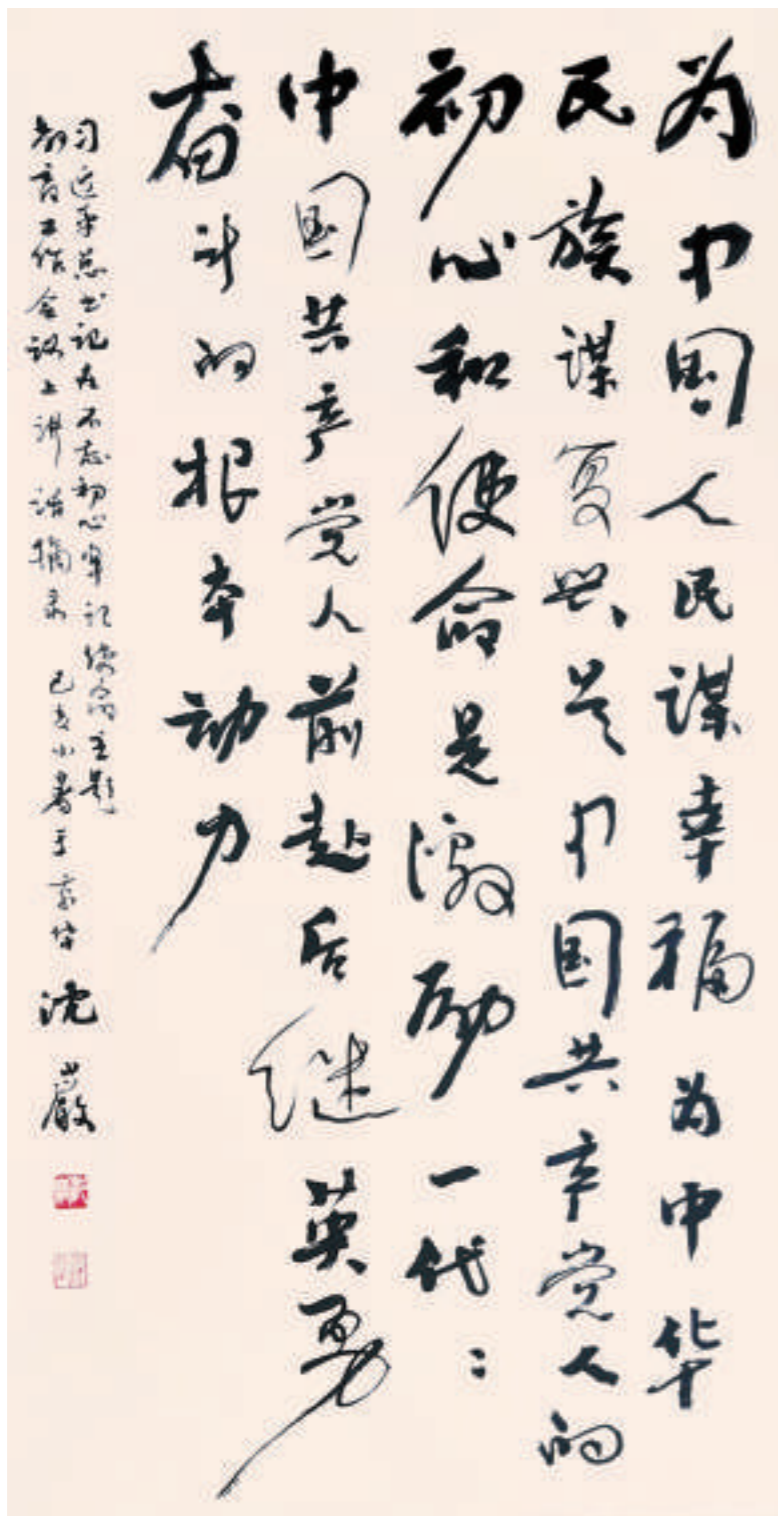 为中国人民谋幸福为中华
民族谋复兴是中国共产党人的
初心和使命是激励一代〻
中国共产党人前赴后继英勇
奋斗的根本动力
习近平总书记在不忘初心牢记使命主题
教育工作会议上讲话摘录
己亥小暑于京华 沈岩